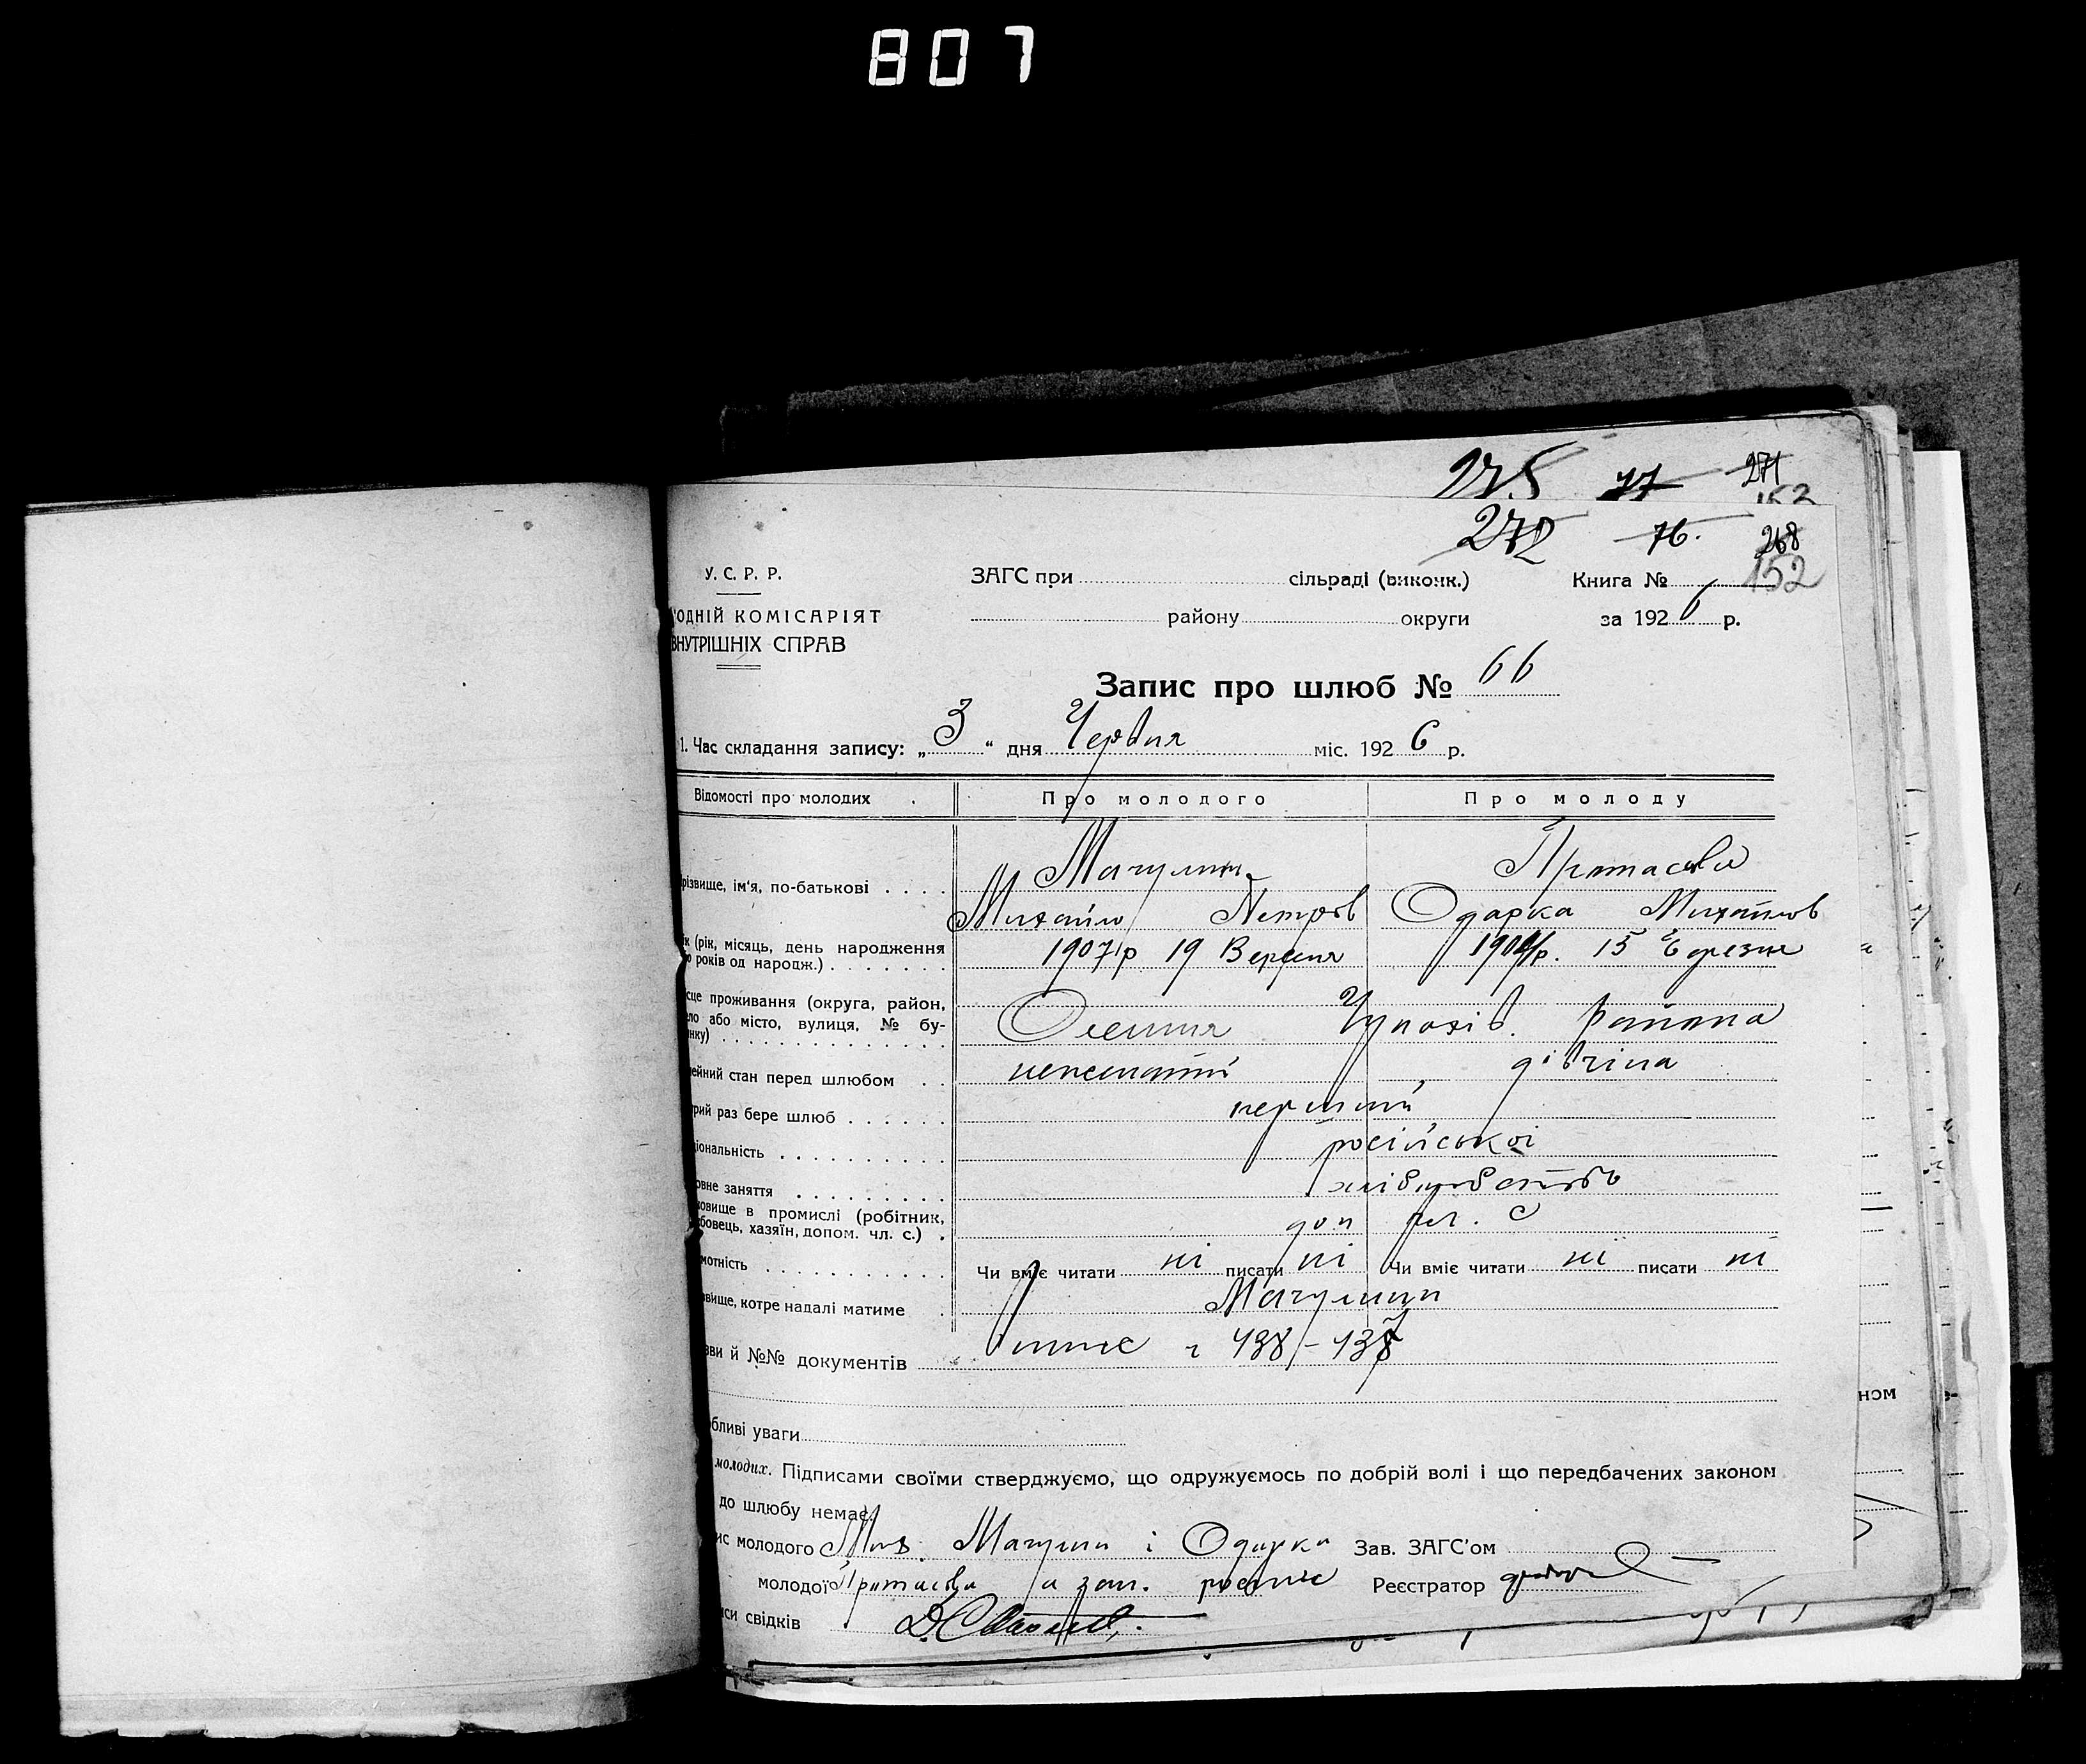 807
275 77 271
152
272 76. 268
152
У. С. Р. Р.
ОДНІЙ КОМІСАРІЯТ
ВНУТРІШНІХ СПРАВ
ЗАГС при сільраді (виконк.) Книга №
району округи за 1926 р.
Запис про шлюб № 66
1. Час складання запису: „3“ дня Червня міс. 1926 р.
Відомості про молодих Про молодого Про молоду
різвище, ім'я, по-батькові . . . . Мачулин Протасова
Михайло Петров Одарка Михайлов
ік (рік, місяць, день народження 1907 р 19 Вересня р. 15 Березня
років од народж.) . . . . . . .
сце проживання (округа, район,
ело або місто, вулиця, № бу- Чупахів. района
нку) . . . . . . . . . . . . . .
ейний стан перед шлюбом . . нежонатий дівчина
рий раз бере шлюб . . . . . . перший
ціональність . . . . . . . . . . російської
овне заняття . . . . . . . . . хліборобство
овище в промислі (робітник,
бовець, хазяїн, допом. чл. с.) . доп чл. с
мотність . . . . . . . . . . . Чи вміє читати ні писати ні Чи вміє читати ні писати ні
вище, котре надалі матиме . Мачулин
зви й №№ документів 438 - 437
бливі уваги
молодих. Підписами своїми стверджуємо, що одружуємось по добрій волі і що передбачених законом
до шлюбу немає.
ис молодого Мих. Мачулин і Одарка Зав. ЗАГС'ом
молодої Протасова а за н. росписс Реєстратор
иси свідків